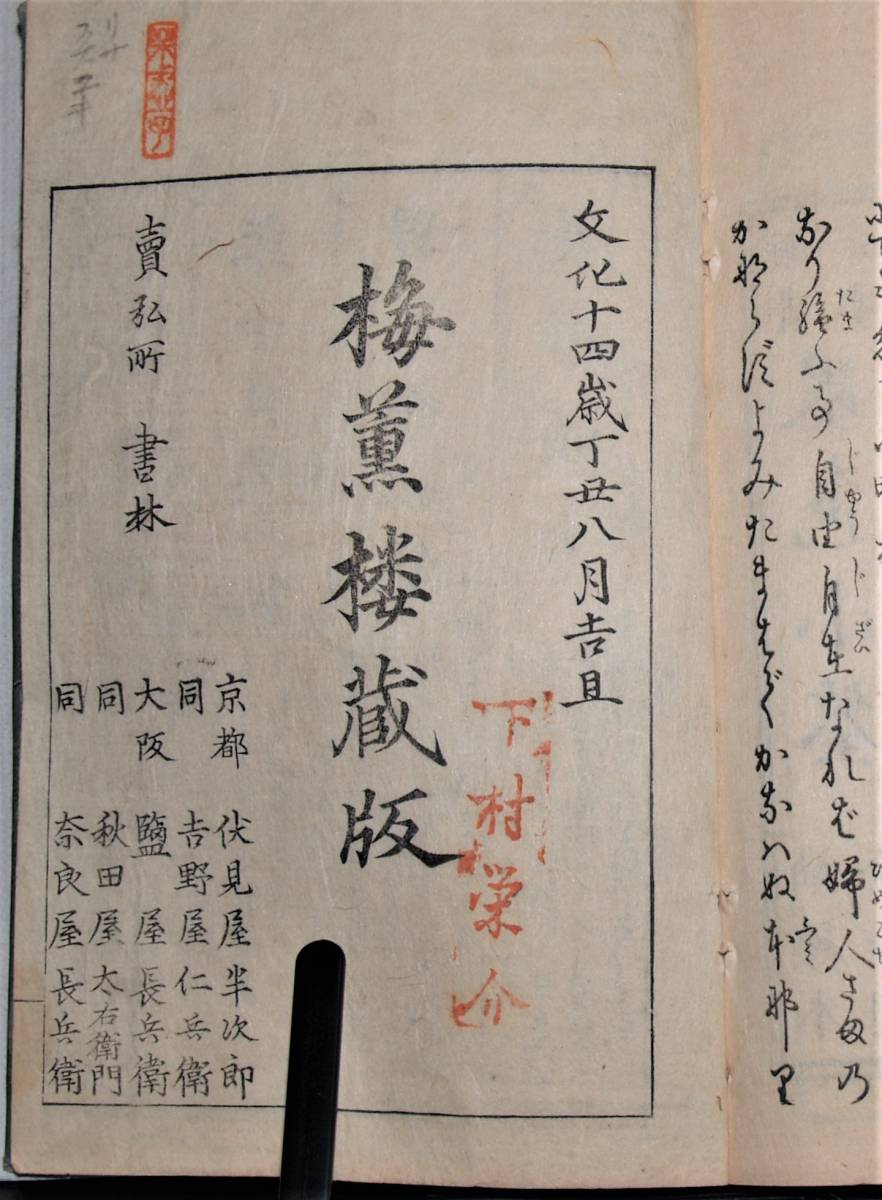 なり給ふ事自由自在なれば婦人さまの
かならずよみたまはでかなはぬ本那里
文化十四歳丁丑八月吉旦
梅薫楼蔵版
下村栄介
賣弘所 書林
京都 伏見屋半次郎
同 吉野屋仁兵衛
大阪 鹽屋長兵衛
同 秋田屋太右衛門
同 奈良屋長兵衛